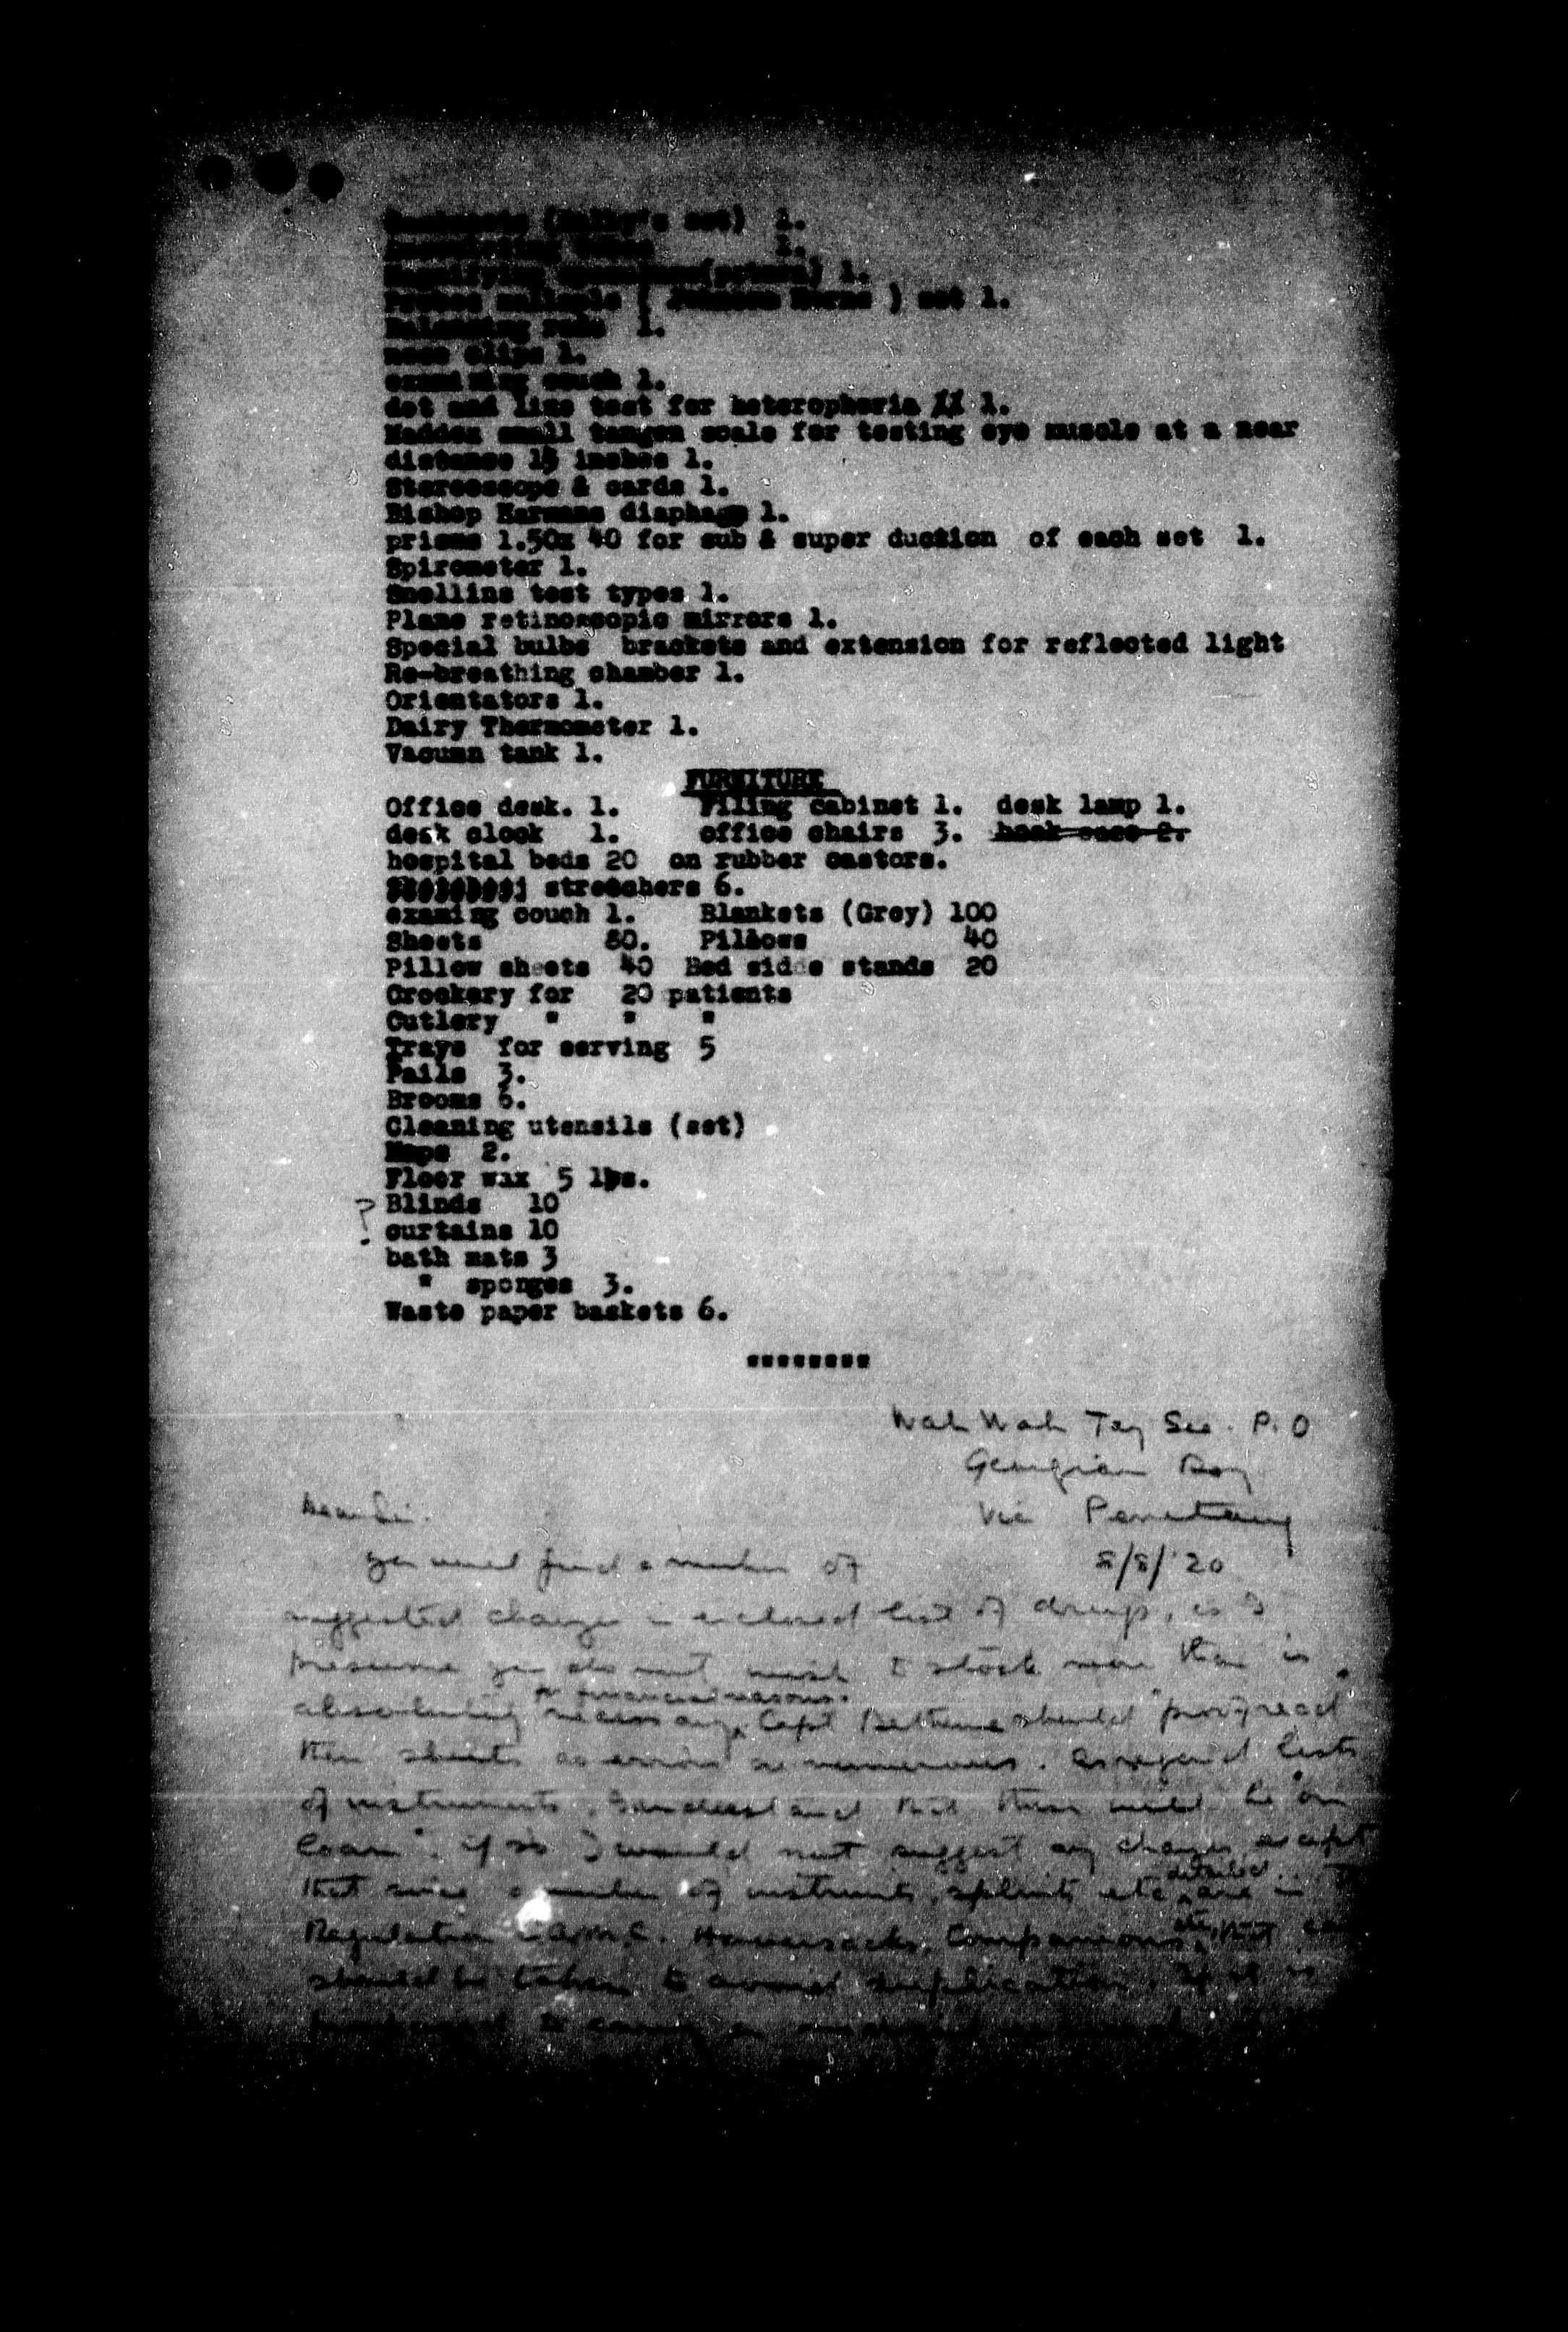 set) 1.
1.
1.
) set 1.
1.
nose clips 1.
couch 1.
dot and line test for heterophoria 1.
Maddox small tangen scale for testing eye muscle at a near
distance 13 inches 1.
Stereoscope & cards 1.
Bishop Harmans diaphagm 1.
prisms 1.50x 40 for sub & super duction of each set 1.
Spirometer 1.
Snellins test types 1.
Plane retinoscopic mirrors 1.
Special bulbs brackets and extension for reflected light
Re-breathing chamber 1.
Orientators 1.
Dairy Thermometer 1.
Vacuum tank 1.
FURNITURE
Office desk. 1. Filing cabinet 1. desk lamp 1.
desk clock 1. office chairs 3. book case 2.
hospital beds 20 on rubber castors.
stretchers 6.
examing couch 1. Blankets (Grey) 100
Sheets 80. Pillows 40
Pillow sheets 40 Bed side stands 20
Crockery for 20 patients
Cutlery " " "
Trays for serving 5
Pails 3.
Brooms 6.
Cleaning utensils (set)
Mops 2.
Floor wax 5 lbs.
? Blinds 10
curtains 10
bath mats 3
" sponges 3.
Waste paper baskets 6.
""""""""
Wah Wah Tay See. P.O
Georgian Bay
Via Penetang
Dear Sir.
8/8/'20
you will find a number of
suggested changes in enclosed list of drugs, as I
presume you do not wish to stock more than is
absolutely necessary for financial reasons. Capt Bethune should "proof read"
then sheets as errors are numerous. As regard lists
of instruments. I understand that these will be "on
loan". if so I would not suggest any changes except
that since a number of instruments, splints etc are detailed in
Regulation C.A.M.C. Haversacks, Companions etc, that
should be taken to avoid duplication. If it is